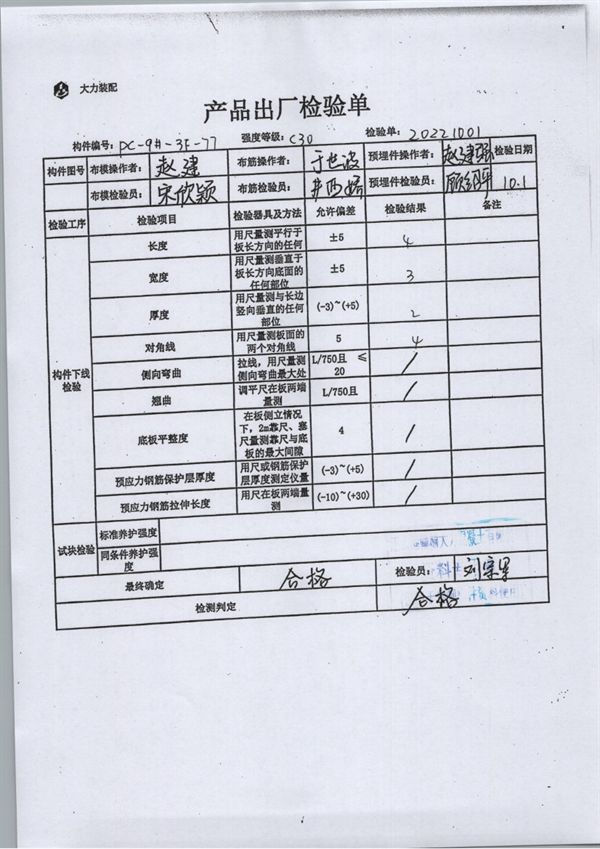 大力装配
产品出厂检验单
构件编号：PC-9#-3F-77 强度等级：C30 检验单：20221001
构件图号 布模操作者：赵建 布筋操作者：于世波 预埋件操作者：赵建强 检验日期
布模检验员：宋欣颖 布筋检验员： 预埋件检验员： 10.1
检验工序 检验项目 检验器具及方法 允许偏差 检验结果 备注
构件下线检验
长度 用尺量测平行于板长方向的任何 ±5 4
宽度 用尺量测垂直于板长方向底面的任何部位 ±5 3
厚度 用尺量测与长边竖向垂直的任何部位 (-3)~(+5) 2
对角线 用尺量测板面的两个对角线 5 4
侧向弯曲 拉线，用尺量测侧向弯曲最大处 L/750且 ≤20 /
翘曲 调平尺在板两端量测 L/750且 /
底板平整度 在板侧立情况下，2m靠尺、塞尺量测靠尺与底板的最大间隙 4 /
预应力钢筋保护层厚度 用尺或钢筋保护层厚度测定仪量 (-3)~(+5) /
预应力钢筋拉伸长度 用尺在板两端量测 (-10)~(+30) /
试块检验 标准养护强度
同条件养护强度
最终确定 合格 检验员：
检测判定 合格